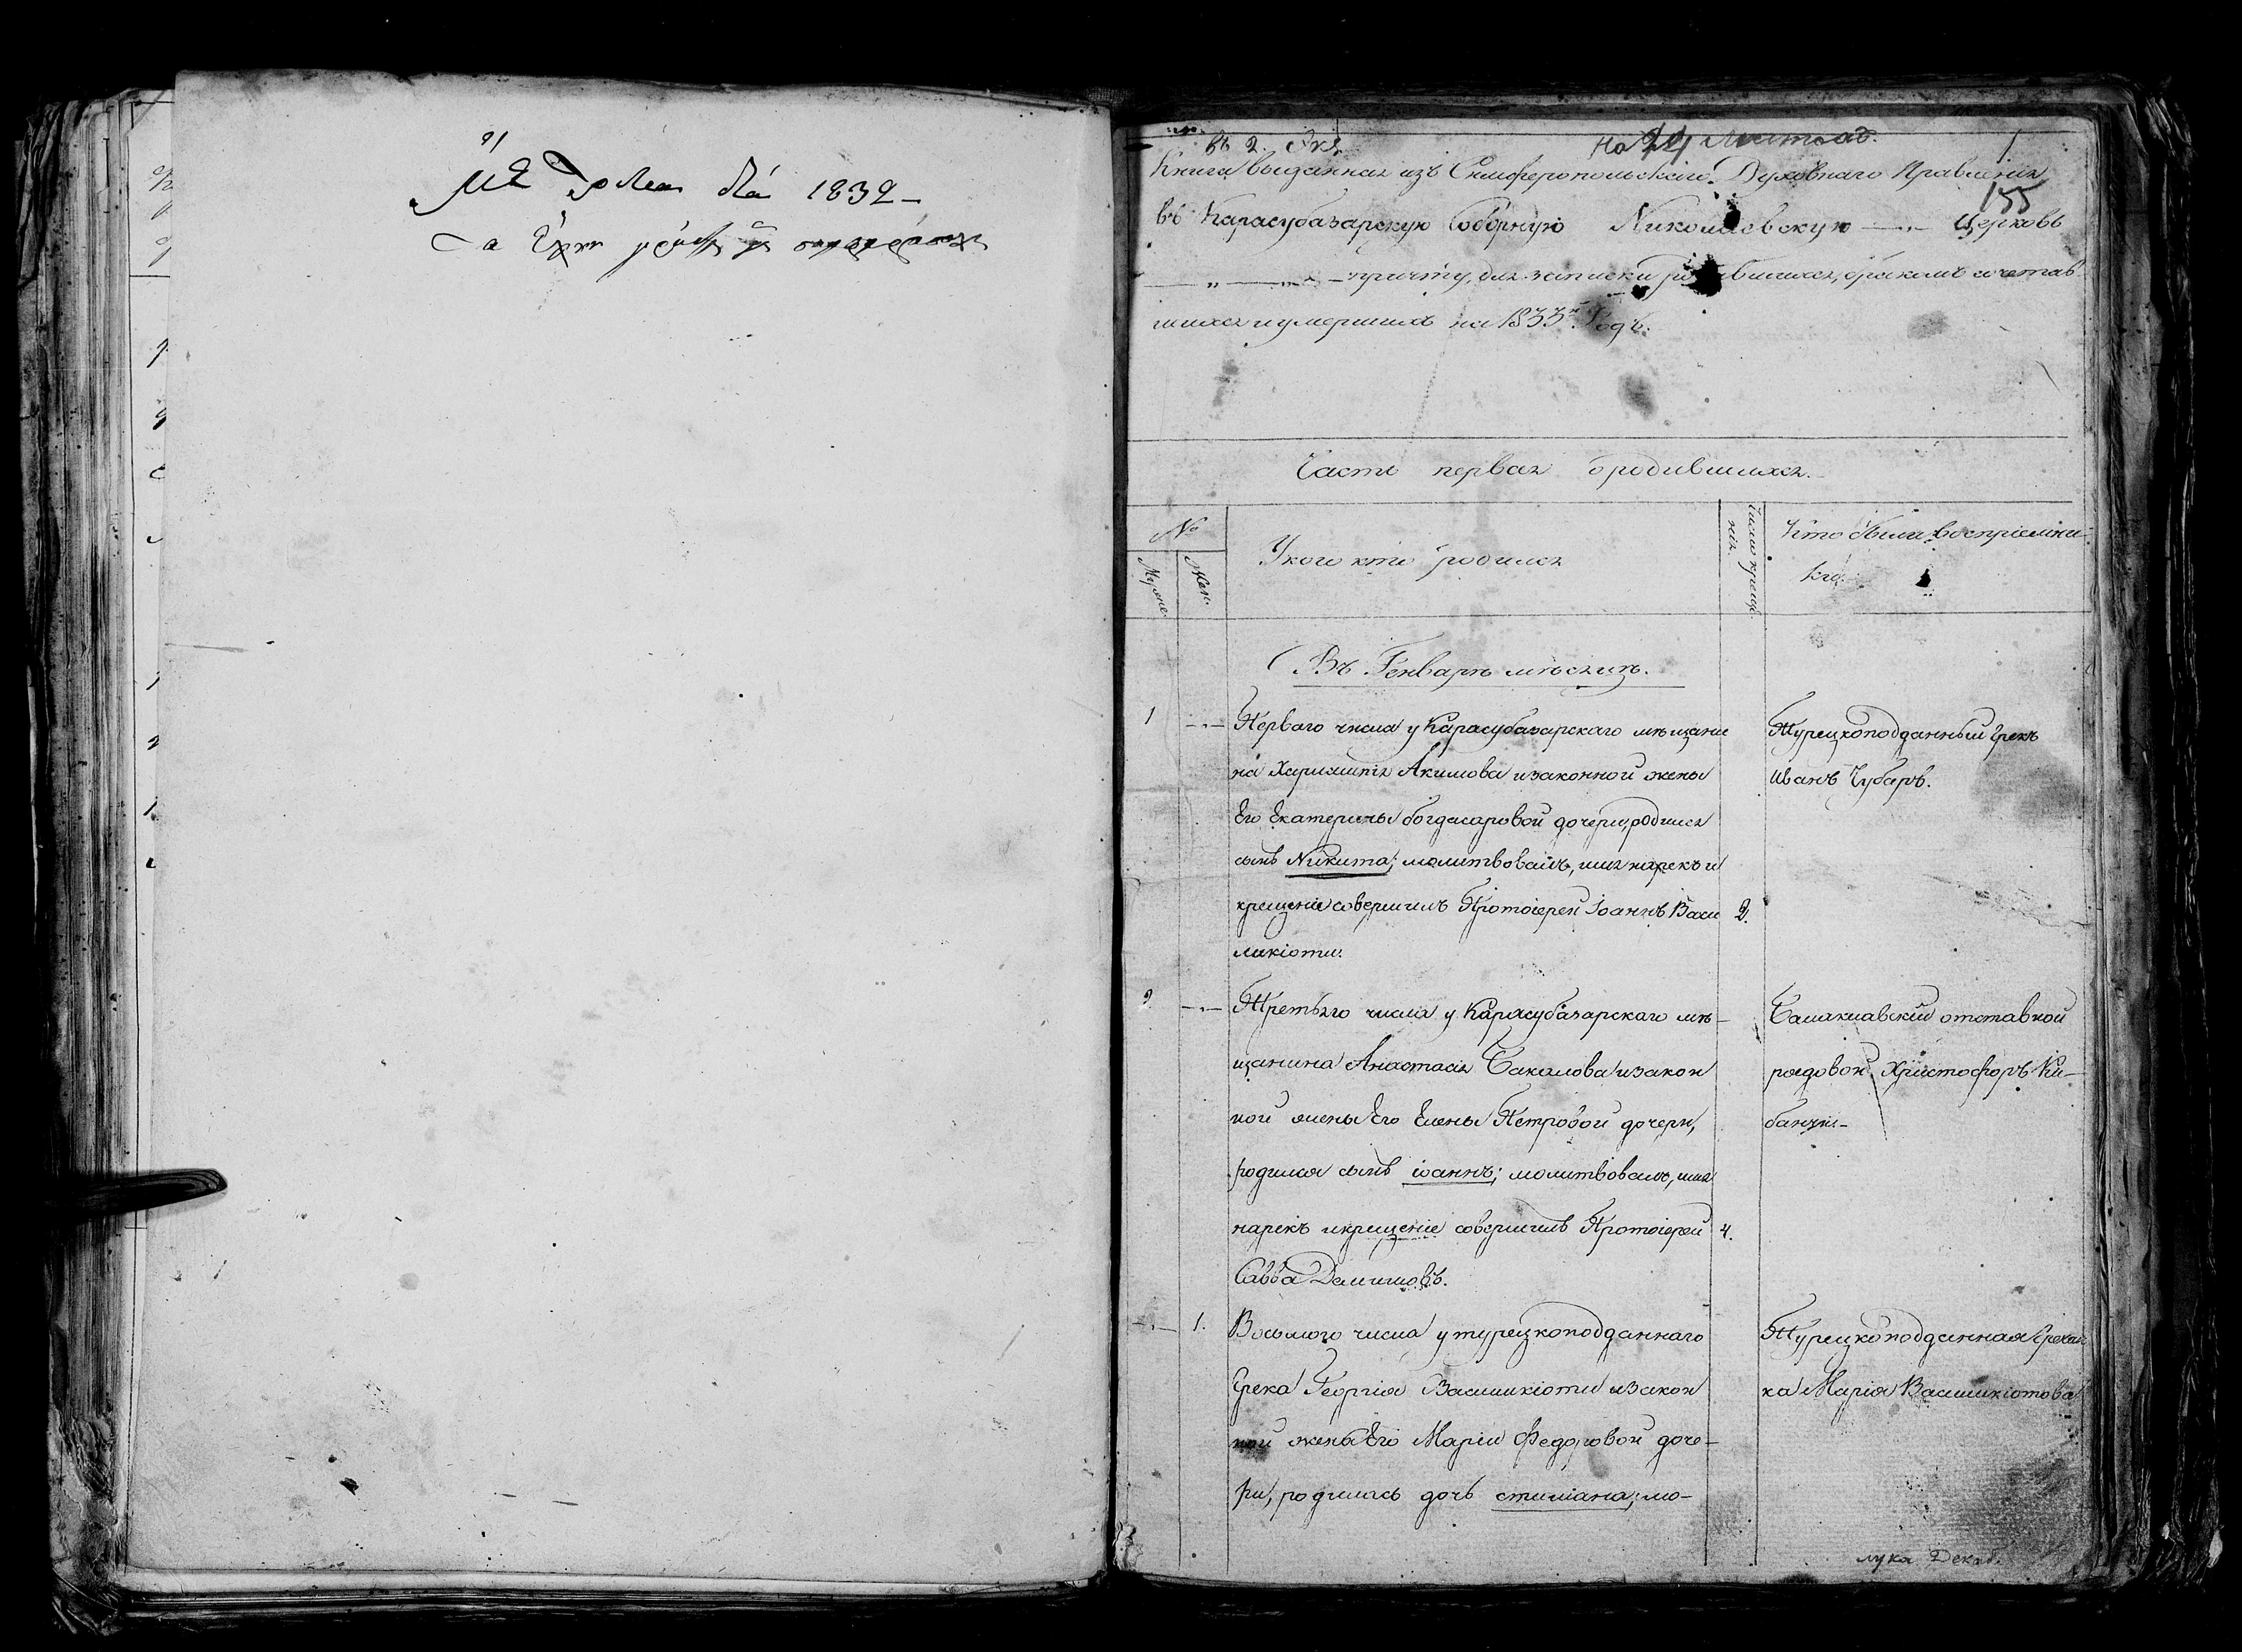 1832
въ 2. Экз.
На 24 листоаъ. 1
Книга выданная изъ Симферопольскаго Духовнаго Правленія
155
въ Карасубазарскую Соборную Николаевскую церковь
причту, для записки родившихся, бракомъ сочетав
шихся и умершихъ на 1833й Годъ.
Часть первая о родившихся.
№
Муже.
Жен.
У кого кто родился
Число креще
нія.
Кто были воспріемни-
ки.
Въ Генварѣ мѣсяцѣ.
1
Перваго числа у Карасубазарскаго мѣщани
на Харлампія Акимова и законной жены
Его Екатерины богдасаровой дочери, родился
сынъ Никита; молитвовалъ, имя нарекъ и
крещеніе совершилъ Протоіерей Іоаннъ Васи
ликіоти.
2.
Турецкоподданный Грекъ
Иванъ Чубаръ.
2
Третьяго числа у Карасубазарскаго мѣ-
щанина Анастасія Бакалова и закон
ной жены Его Елены Петровой дочери,
родился сынъ іоаннъ; молитвовалъ, имя
нарекъ и крещеніе совершилъ Протоіерей
Савва
4.
Балаклавскій отставной
рядовой Христофоръ Ки-
1.
Восьмого числа у турецкоподданнаго
Грека Георгія Василикіоти и закон
ной жены Его Маріи Федоровой доче-
ри, родилась дочь стиліана; мо-
Турецкоподданная Гречан
ка Марія Василикіотова
лука Декат.